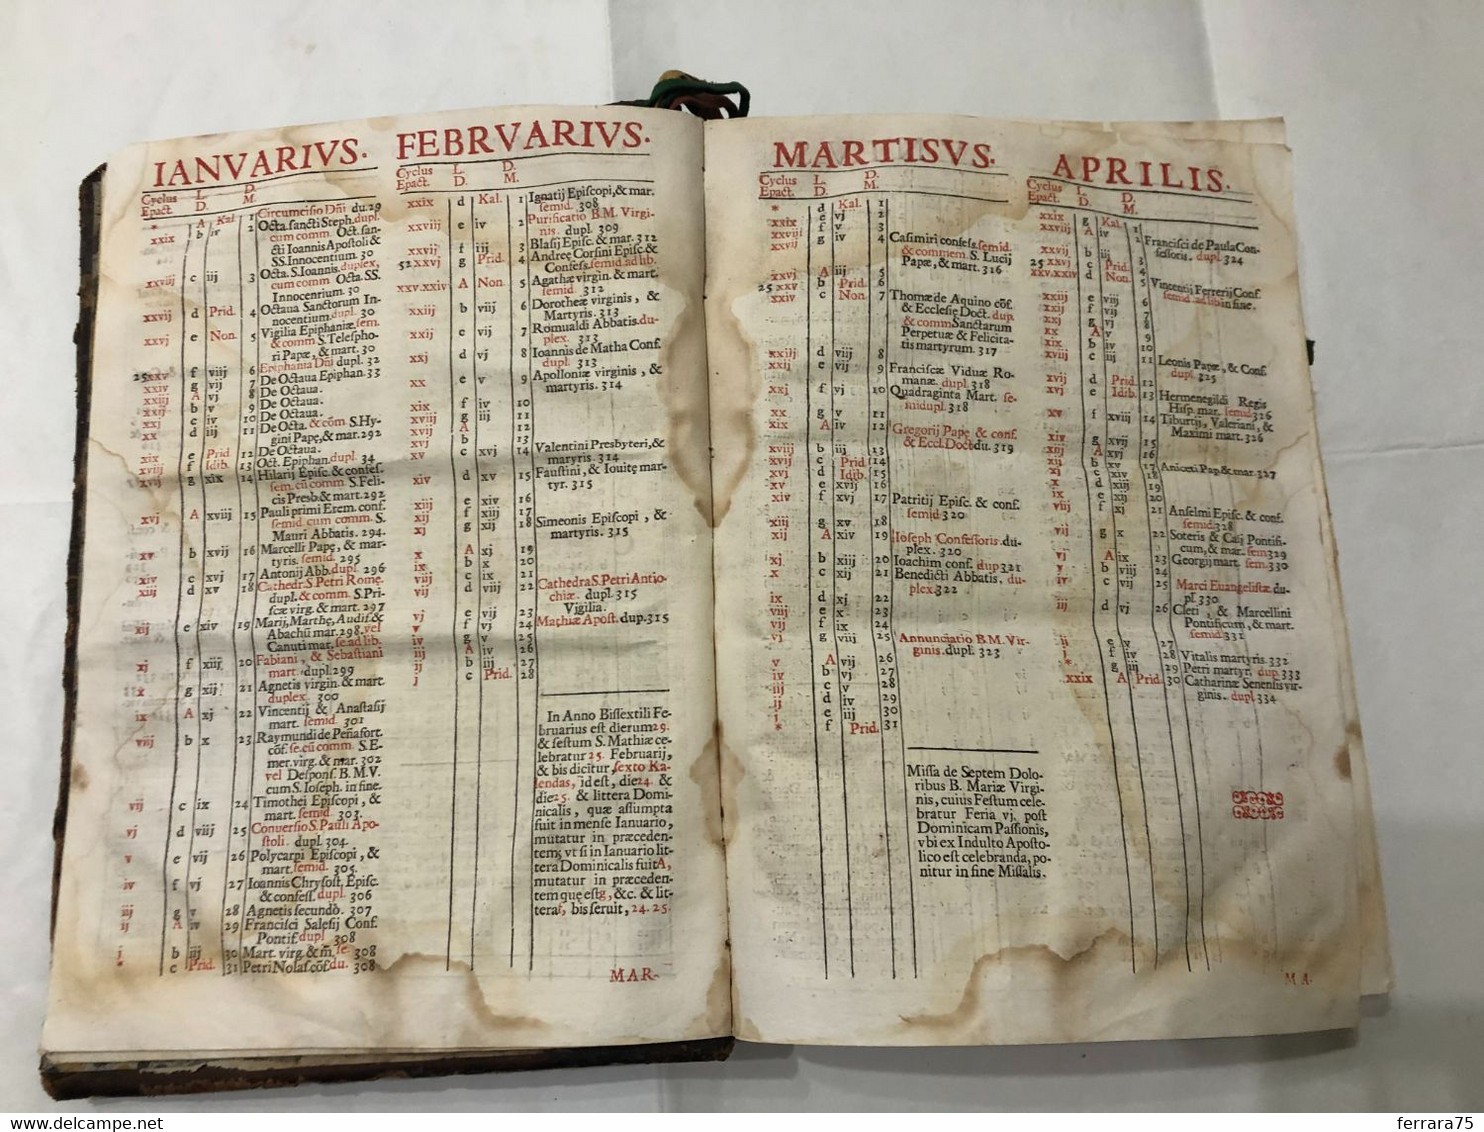 IANVARIVS.
Cyclus L. D.
Epact. D. M.
* A Kal. 1 Circumcisio Dñi du. 29
xxix b iv 2 Octa. sancti Steph. dupl.
cum comm. Oct. san-
cti Ioannis Apostoli &
SS. Innocentium. 30
xxviij c iij 3 Octa. S. Ioannis. duplex,
cum comm. Octa. SS.
Innocentium. 30
xxvij d Prid. 4 Octaua Sanctorum In-
nocentium. dupl. 30
xxvj e Non. 5 Vigilia Epiphaniæ sem.
& comm S. Telespho-
ri Papæ, & mart. 30
25 xxv f viij 6 Epiphania Dñi dupl. 32
xxiv g vij 7 De Octaua Epiphan. 33
xxiij A vj 8 De Octaua.
xxij b v 9 De Octaua.
xxj c iv 10 De Octaua.
xx d iij 11 De Octa. & cõm S. Hy-
gini Papę, & mar. 292
xix e Prid 12 De Octaua.
xviij f Idib. 13 Oct. Epiphan. dupl. 34
xvij g xix 14 Hilarij Episc. & confess.
sem. cũ comm. S. Feli-
cis Presb. & mart. 292
xvj A xviij 15 Pauli primi Erem. conf.
semid. cum comm. S.
Mauri Abbatis. 294.
xv b xvij 16 Marcelli Papę, & mar-
tyris. semid. 295
xiv c xvj 17 Antonij Abb. dupl. 296
xiij d xv 18 Cathedr. S. Petri Romę.
dupl. & comm. S. Pri-
scæ virg. & mart. 297
xij e xiv 19 Marij, Marthę, Audif. &
Abachũ mar. 298. vel
Canuti mar. se. ad lib.
xj f xiij 20 Fabiani, & Sebastiani
mart. dupl. 299
x g xij 21 Agnetis virgin. & mart.
duplex. 300
ix A xj 22 Vincentij & Anastasij
mart. semid. 301
viij b x 23 Raymundi de Peñafort.
cõf. se. cũ comm. S. E-
mer. virg. & mar. 302
vel Despons. B. M. V
cum S. Ioseph. in fine.
vij c ix 24 Timothei Episcopi, &
mart. semid. 303.
vj d viij 25 Conuersio S. Pauli Apo-
stoli. dupl. 304.
v e vij 26 Polycarpi Episcopi, &
mart. semid. 305.
iv f vj 27 Ioannis Chrysost. Episc.
& confess. dupl. 306
iij g v 28 Agnetis secundò. 307
ij A iv 29 Francisci Salesij Conf.
Pontif. dupl 308
j b iij 30 Mart. virg. & m̃. se. 308
* c Prid. 31 Petri Nolas. cõf. du. 308
FEBRVARIVS.
Cyclus L. D.
Epact. D. M.
xxix d Kal. 1 Ignatij Episcopi, & mar.
semid. 308
xxviij e iv 2 Purificatio B. M. Virgi-
nis. dupl. 309
xxvij f iij 3 Blasij Episc. & mar. 312
52 xxvj g Prid. 4 Andreę Corsini Episc. &
Confess. semid. ad lib.
xxv. xxiv A Non. 5 Agathæ virgin. & mart.
semid. 312
xxiij b viij 6 Dorotheæ virginis, &
Martyris. 313
xxij c vij 7 Romualdi Abbatis. du-
plex. 313
xxj d vj 8 Ioannis de Matha Conf.
dupl. 313
xx e v 9 Apolloniæ virginis, &
martyris. 314
xix f iv 10
xviij g iij 11
xvij A 12
xvj b 13
xv c xvj 14 Valentini Presbyteri, &
martyris. 314
xiv d xv 15 Faustini, & Iouitę mar-
tyr. 315
xiij e xiv 16
xij f xiij 17
xj g xij 18 Simeonis Episcopi, &
martyris. 315
x A xj 19
ix b x 20
viij c ix 21
vij d viij 22 Cathedra S. Petri Antio-
chiæ. dupl. 315
vj e vij 23 Vigilia.
v f vj 24 Mathiæ Apost. dup. 315
iv g v 25
iij A iv 26
ij b iij 27
j c Prid. 28
In Anno Bissextili Fe-
bruarius est dierum 29.
& festum S. Mathiæ ce-
lebratur 25. Februarij,
& bis dicitur, sexto Ka-
lendas, id est, die 24. &
die 25. & littera Domi-
nicalis, quæ assumpta
fuit in mense Ianuario,
mutatur in præceden-
tem; vt si in Ianuario lit-
tera Dominicalis fuit A,
mutatur in præceden-
tem quę est g, &c. & lit-
tera f, bis seruit, 24. 25.
MAR-
MARTISVS.
Cyclus L. D.
Epact. D. M.
* d Kal. 1
xxix e vj 2
xxviij f v 3
xxvij g iv 4 Casimiri confess. semid.
& commem. S. Lucij
Papæ, & mart. 316
xxvj A iij 5
25 xxv b Prid. 6
xxiv c Non. 7 Thomæ de Aquino cõf.
& Ecclesię Doct. dup.
& comm Sanctarum
Perpetuæ & Felicita-
tis martyrum. 317
xxiij d viij 8
xxij e vij 9 Franciscæ Viduæ Ro-
manæ. dupl 318
xxj f vj 10 Quadraginta Mart. se-
midupl. 318
xx g v 11
xix A iv 12 Gregorij Papę & conf.
& Eccl. Doct. du. 319
xviij b iij 13
xvij c Prid 14
xvj d Idib. 15
xv e xvij 16
xiv f xvj 17 Patritij Episc. & conf.
semid 320
xiij g xv 18
xij A xiv 19 Ioseph Confessoris. du-
plex. 320
xj b xiij 20 Ioachim conf. dup 321
x c xij 21 Benedicti Abbatis. du-
plex. 322
ix d xj 22
viij e x 23
vij f ix 24
vj g viij 25 Annunciatio B. M. Vir-
ginis. dupl. 323
v A vij 26
iv b vj 27
iij c v 28
ij d iv 29
j e iij 30
* f Prid. 31
Missa de Septem Dolo-
ribus B. Mariæ Virgi-
nis, cuius Festum cele-
bratur Feria vj. post
Dominicam Passionis,
vbi ex Indulto Aposto-
lico est celebranda, po-
nitur in fine Missalis.
APRILIS.
Cyclus L. D.
Epact. D. M.
xxix g Kal. 1
xxviij A iv 2 Francisci de Paula Con-
fessoris. dupl. 324
xxvij b iij 3
25 xxvj c Prid. 4
xxv. xxiv d Non. 5 Vincentij Ferrerij Conf.
semid. ad lib in fine.
xxiij e viij 6
xxij f vij 7
xxj g vj 8
xx A v 9
xix b iv 10
xviij c iij 11 Leonis Papæ, & Conf.
dupl. 325
xvij d Prid. 12
xvj e Idib. 13 Hermenegildi Regis
Hisp. mar. semid 326
xv f xviij 14 Tiburtij, Valeriani, &
Maximi mart. 326
xiv g xvij 15
xiij A xvj 16
xij b xv 17 Aniceti Pap. & mar. 327
xj c xiv 18
x d xiij 19
ix e xij 20
viij f xj 21 Anselmi Episc. & conf.
semid. 328
vij g x 22 Soteris & Caij Pontifi-
cum, & mar. sem 329
vj A ix 23 Georgij mart. sem. 330
v b viij 24
iv c vij 25 Marci Euangelistæ du-
pl. 330
iij d vj 26 Cleti, & Marcellini
Pontificum, & mart.
semid. 331
ij e v 27
j f iv 28 Vitalis martyris. 332
* g iij 29 Petri martyr. dup. 333
xxix A Prid. 30 Catharinæ Senensis vir-
ginis. dupl. 334
MA-
www.delcampe.net
ferrara75